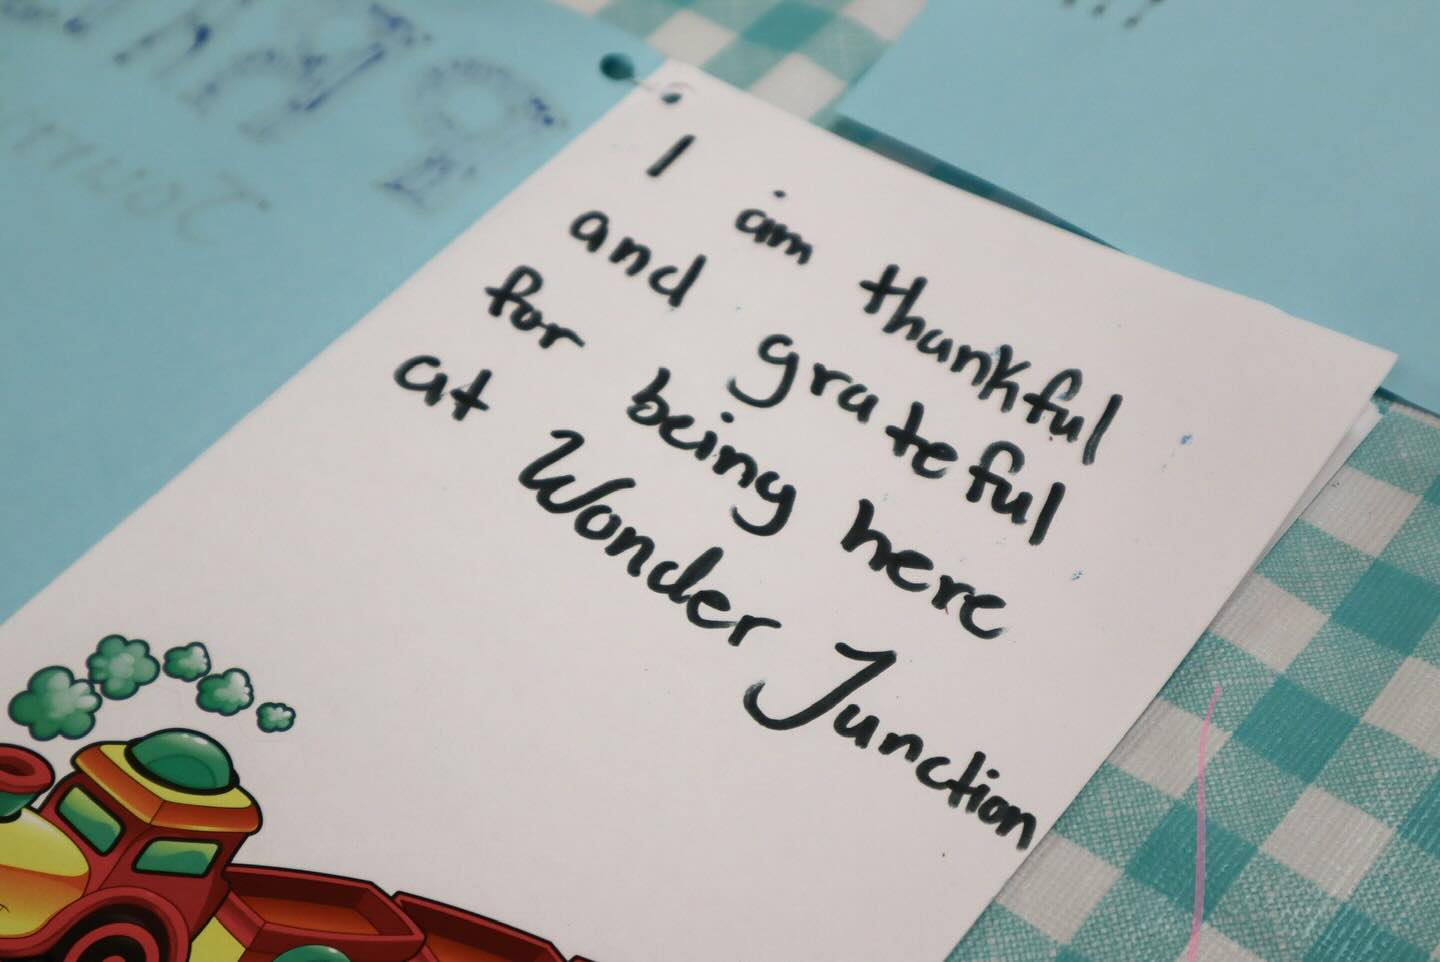 I am thankful
and grateful
for being here
at Wonder Junction